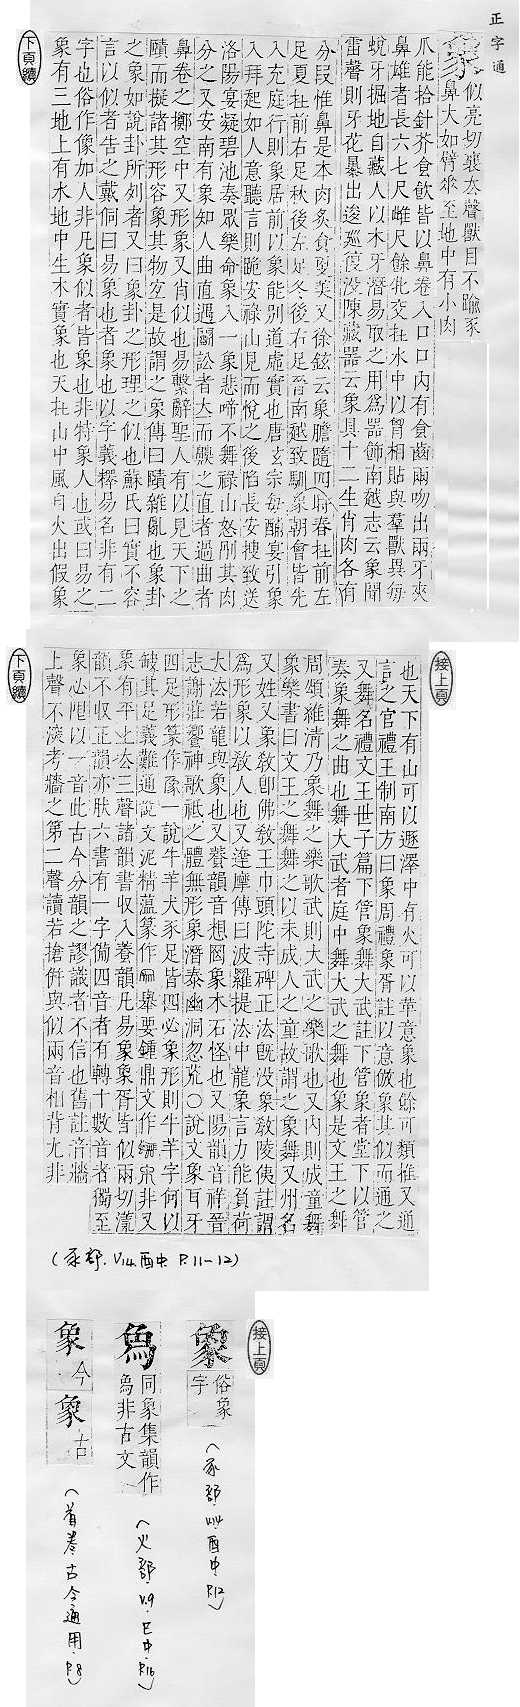 正字通
象 似亮切襄去聲獸目不踰豕
鼻大如臂垂至地中有小肉
爪能拾針芥食飲皆以鼻卷入口口內有食齒兩吻出兩牙夾
鼻雄者長六七尺雌尺餘牝交在水中以胷相貼與羣獸異每
蛻牙掘地自藏人以木牙潛易取之用爲器飾南越志云象聞
雷聲則牙花暴出逡巡復没陳藏器云象具十二生肖肉各有
分段惟鼻是本肉炙食更美又徐鉉云象膽隨四時春在前左
足夏在前右足秋後左足冬後右足晉南越致馴象朝會皆先
入充庭行則象居前以象能別道虛實也唐玄宗每酺宴引象
入拜起如人意聽言則跪安祿山見而悅之後陷長安捜致送
洛陽宴凝碧池奏眾樂命象入一象悲啼不舞祿山怒刖其肉
分之又安南有象知人曲直遇鬭訟者大而嗅之直者過曲者
鼻卷之擲空中又形象又肖似也易繫辭聖人有以見天下之
賾而擬諸其形容象其物宜是故謂之象傳曰賾雜亂也象卦
之象如說卦所列者又曰象卦之形理之似也蘇氏曰實不容
言以似者告之戴侗曰易象也者象也以字義釋易名非有二
字也俗作像如人非凡象似者皆象也非特象人也或曰易之
象有三地上有水地中生木實象也天在山中風自火出假象
下頁續
接上頁
也天下有山可以遯澤中有火可以革意象也餘可類推又通
言之官禮王制南方曰象周禮象胥註以意倣象其似而通之
又舞名禮文王世子篇下管象舞大武註下管象者堂下以管
奏象舞之曲也舞大武者庭中舞大武之舞也象是文王之舞
周頌維清乃象舞之樂歌武則大武之樂歌也又內則成童舞
象樂書曰文王之舞舞之以未成人之童故謂之象舞又州名
又姓又象敎卽佛敎王巾頭陀寺碑正法旣没象敎陵夷註謂
爲形象以敎人也又達摩傳曰波羅提法中龍象言力能負荷
大法若龍與象也又養韻音想罔象木石怪也又陽韻音祥晉
志謝莊饗神歌祗之體無形象潛泰幽洞忽荒○說文象耳牙
四足形篆作 一說牛羊犬豕足皆四必象形則牛羊字何以
缺其足義難通說文泥精薀篆作 舉要鍾鼎文作 非又
象有平上去三聲諸韻書收入養韻凡易象象胥皆似兩切漾
韻不收正韻亦肰六書有一字備四音者有轉十數音者獨至
象必限以一音此古今分韻之謬識者不信也舊註音牆
上聲不淺考牆之第二聲讀若搶併與似兩音相背尢非
下頁續
(豕部.V14.酉中 P.11-12)
接上頁
象 俗象字
(豕部.V14.酉中.P.12)
同象集韻作爲非古文
(火部.V.9.巳中.P.16)
象今 象古
(首卷.古今通用.P.8)